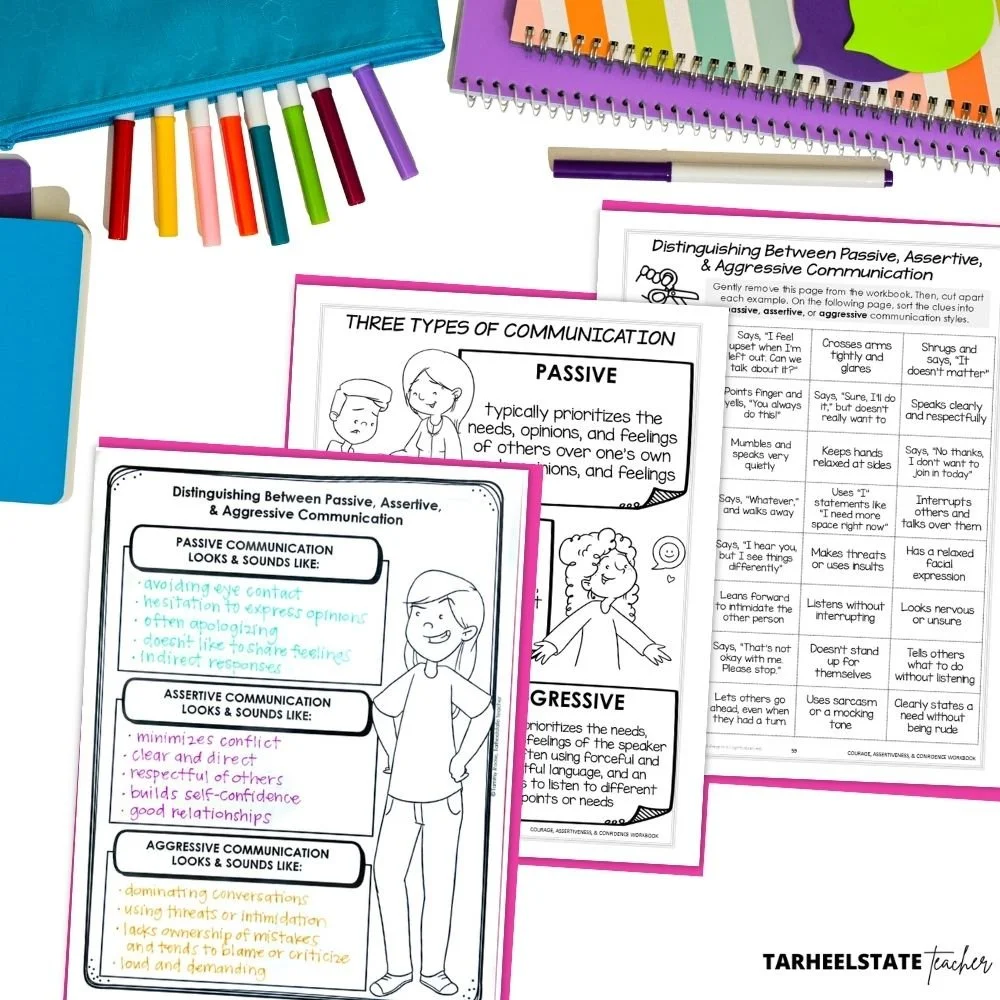 Distinguishing Between Passive, Assertive,
& Aggressive Communication
Gently remove this page from the workbook. Then, cut apart
each example. On the following page, sort the clues into
passive, assertive, or aggressive communication styles.
Says, "I feel
upset when I'm
left out. Can we
talk about it?"
Crosses arms
tightly and
glares
Shrugs and
says, "It
doesn't matter"
Points finger and
yells, "You always
do this!"
Says, "Sure, I'll do
it," but doesn't
really want to
Speaks clearly
and respectfully
Mumbles and
speaks very
quietly
Keeps hands
relaxed at sides
Says, "No thanks,
I don't want to
join in today"
Says, "Whatever,"
and walks away
Uses "I"
statements like
"I need more
space right now"
Interrupts
others and
talks over them
Says, "I hear you,
but I see things
differently"
Makes threats
or uses insults
Has a relaxed
facial
expression
Leans forward
to intimidate the
other person
Listens without
interrupting
Looks nervous
or unsure
Says, "That's not
okay with me.
Please stop."
Doesn't stand
up for
themselves
Tells others
what to do
without listening
Lets others go
ahead, even when
they had a turn
Uses sarcasm
or a mocking
tone
Clearly states a
need without
being rude
59
COURAGE, ASSERTIVENESS, & CONFIDENCE WORKBOOK
THREE TYPES OF COMMUNICATION
PASSIVE
typically prioritizes the
needs, opinions, and feelings
of others over one's own
opinions, and feelings
GRESSIVE
prioritizes the needs,
feelings of the speaker
often using forceful and
language, and an
to listen to different
points or needs
COURAGE, ASSERTIVENESS, & CONFIDENCE WORKBOOK
Distinguishing Between Passive, Assertive,
& Aggressive Communication
PASSIVE COMMUNICATION
LOOKS & SOUNDS LIKE:
• avoiding eye contact
• hesitation to express opinions
• often apologizing
• doesn't like to share feelings
• indirect responses
ASSERTIVE COMMUNICATION
LOOKS & SOUNDS LIKE:
• minimizes conflict
• clear and direct
• respectful of others
• builds self-confidence
• good relationships
AGGRESSIVE COMMUNICATION
LOOKS & SOUNDS LIKE:
• dominating conversations
• using threats or intimidation
• lacks ownership of mistakes
and tends to blame or criticize
• loud and demanding
TARHEELSTATE teacher